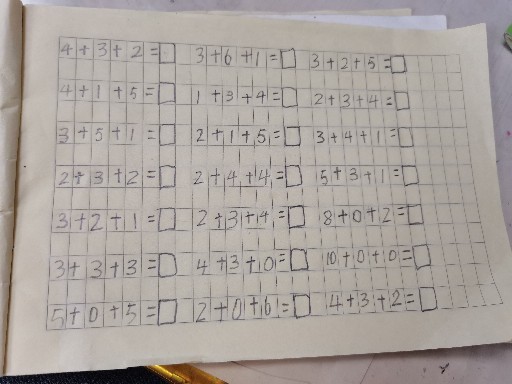 4+3+2=□ 3+6+1=□ 3+2+5=□
4+1+5=□ 1+3+4=□ 2+3+4=□
3+5+1=□ 2+1+5=□ 3+4+1=□
2+3+2=□ 2+4+4=□ 5+3+1=□
3+2+1=□ 2+3+4=□ 8+0+2=□
3+3+3=□ 4+3+0=□ 10+0+0=□
5+0+5=□ 2+0+6=□ 4+3+2=□